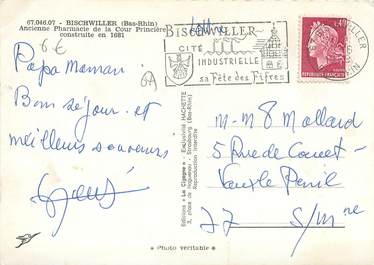 67.046.07 - BISCHWILLER (Bas-Rhin)
Ancienne Pharmacie de la Cour Princière
construite en 1681
6€
Papa Maman
Bon séjour et
meilleurs souvenirs
Editions "La Cigogne" - Exclusivité HACHETTE
3, place de Haguenau - Strasbourg (Bas-Rhin)
Reproduction interdite
BISCHWILLER
CITÉ
INDUSTRIELLE
sa Fête des Fifres
REPUBLIQUE FRANÇAISE
0,40
RHIN
M-M Mollard
5 Rue de
Vaux le Penil
77 S/Mne
* Photo véritable *